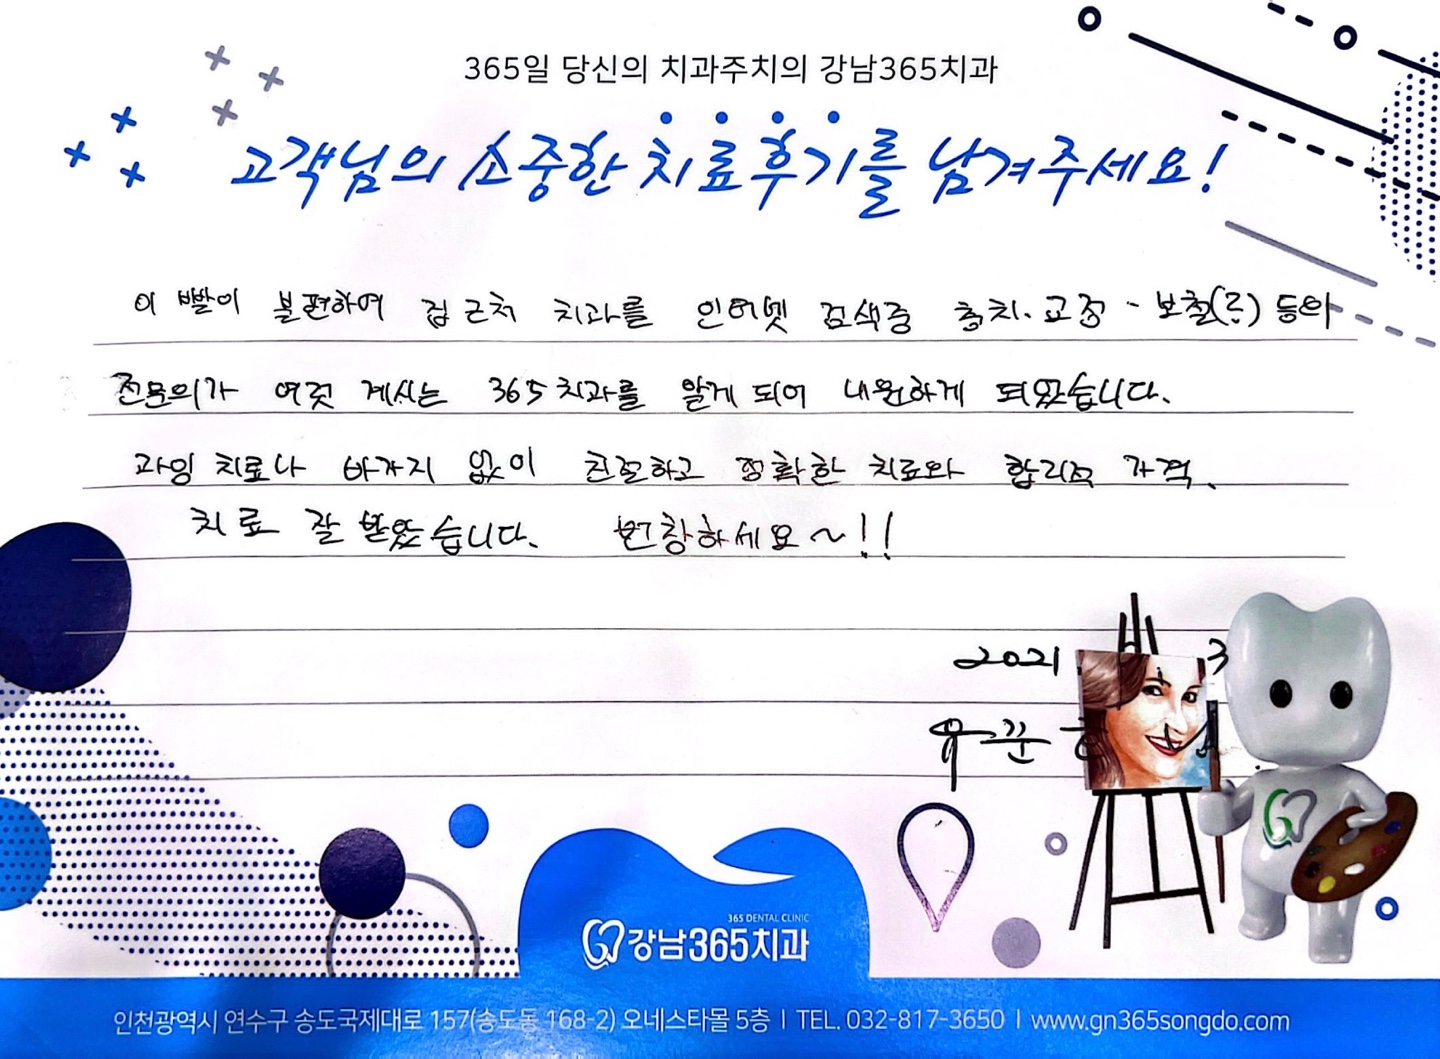 365일 당신의 치과주치의 강남365치과
고객님의 소중한 치료후기를 남겨주세요!
이빨이 불편하여 집 근처 치과를 인터넷 검색중 충치. 교정 - 보철(?) 등의
전문의가 여럿 계시는 365치과를 알게 되어 내원하게 되었습니다.
과잉 치료나 바가지 없이 친절하고 정확한 치료와 합리적 가격.
치료 잘 받았습니다. 번창하세요~!!
2021 3
365 DENTAL CLINIC
강남365치과
인천광역시 연수구 송도국제대로 157(송도동 168-2) 오네스타몰 5층 | TEL. 032-817-3650 | www.gn365songdo.com